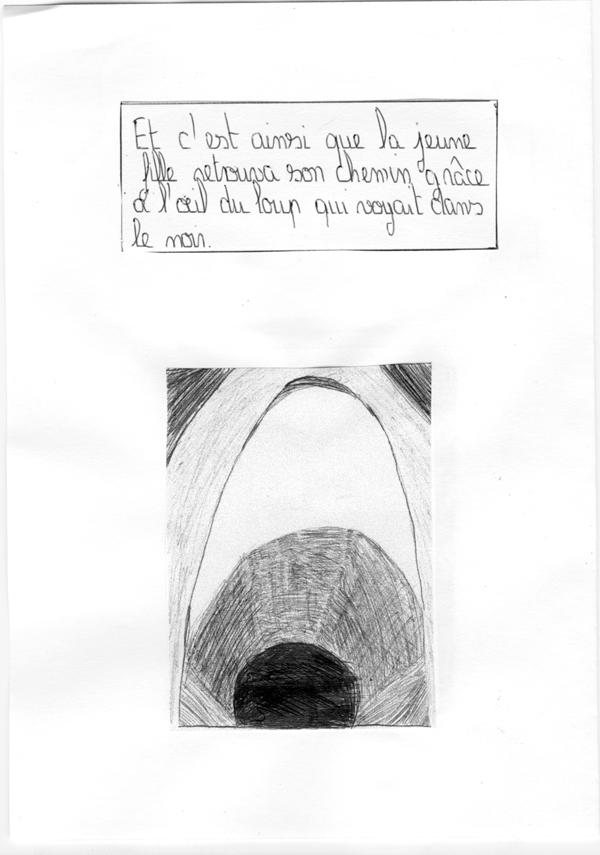 Et c'est ainsi que la jeune
fille retrouva son chemin grâce
à l'œil du loup qui voyait dans
le noir.